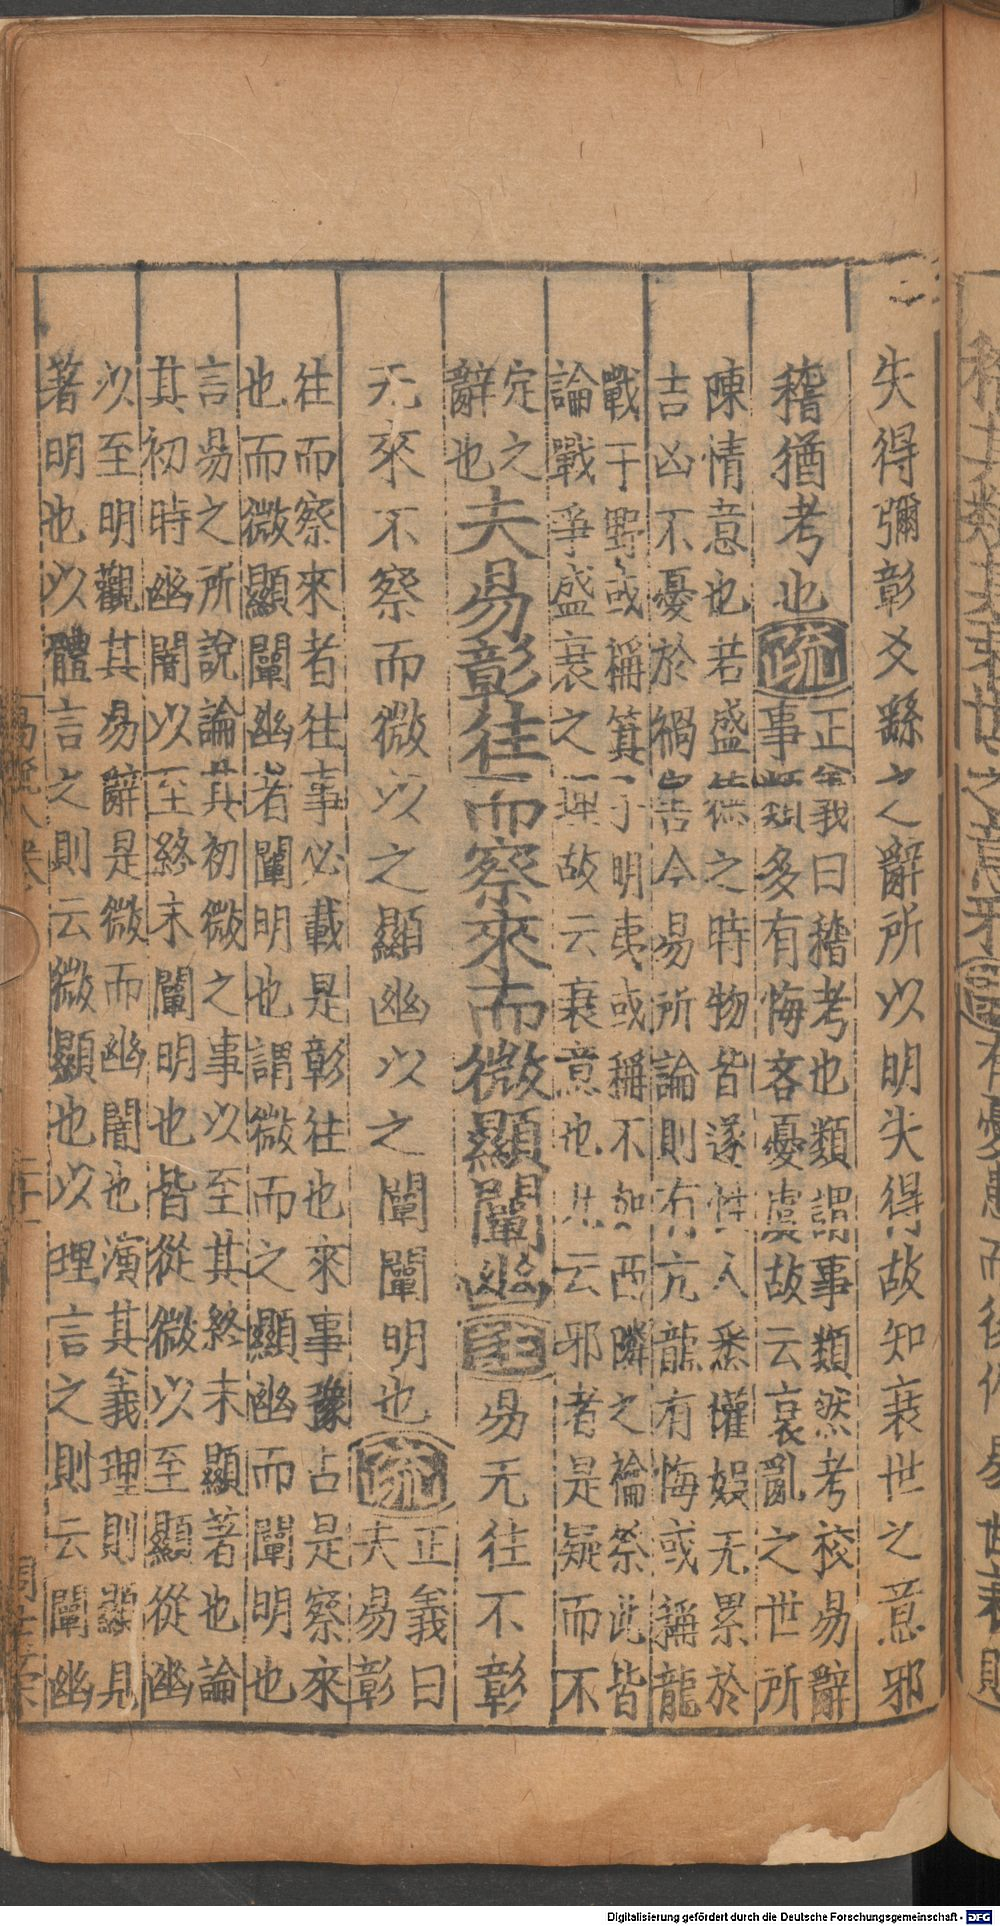 失得彌彰爻繇之辭所以明失得故知衰世之意邪
稽猶考也疏正義曰稽考也類謂事類然考校易辭
事類多有悔吝憂虞故云衰亂之世所
陳情意也若盛德之時物皆遂性人悉懽娛无累於
吉凶不憂於禍害今易所論則有亢龍有悔或稱龍
戰于野或稱箕子明夷或稱不如西隣之禴祭此皆
論戰爭盛衰之理故云衰意也此云邪者是疑而不
定之
辭也夫易彰往而察來而微顯闡幽注易无往不彰
无來不察而微以之顯幽以之闡闡明也疏正義曰
夫易彰
往而察來者往事必載是彰往也來事豫占是察來
也而微顯闡幽者闡明也謂微而之顯幽而闡明也
言易之所說論其初微之事以至其終末顯著也論
其初時幽闇以至終末闡明也皆從微以至顯從幽
以至明觀其易辭是微而幽闇也演其義理則顯見
著明也以體言之則云微顯也以理言之則云闡幽
Digitalisierung gefördert durch die Deutsche Forschungsgemeinschaft - DFG